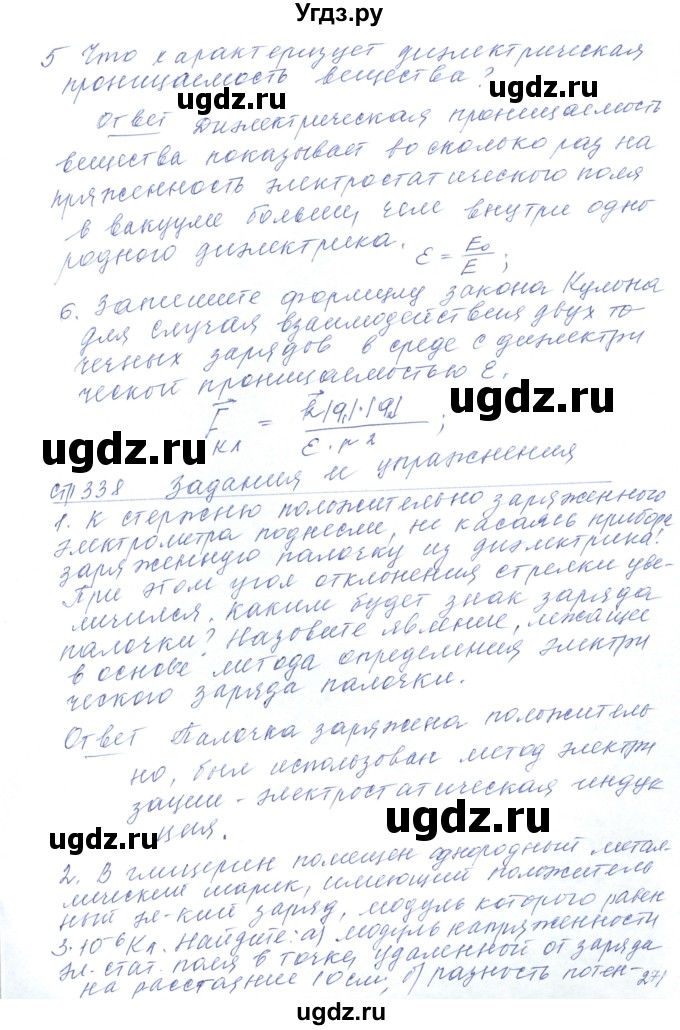 Угдз.ру
5 Что характеризует диэлектрическая
проницаемость вещества?
Ответ Диэлектрическая проницаемость
вещества показывает во сколько раз на
пряженность электростатического поля
в вакууме больше, чем внутри одно
родного диэлектрика. ε = E₀/E ;
6. Запишите формулу закона Кулона
для случая взаимодействия двух то
чечных зарядов в среде с диэлектри
ческой проницаемостью ε.
F⃗кл = k|q₁|·|q₂| / ε·r² ;
стр 338 Задания и упражнения
1. К стержню положительно заряженного
электрометра поднесли, не касаясь прибора
заряженную палочку из диэлектрика!
При этом угол отклонения стрелки уве-
личился. Каким будет знак заряда
палочки? Назовите явление, лежащее
в основе метода определения электри
ческого заряда палочки.
Ответ Палочка заряжена положитель
но, был использован метод электри
зации - электростатическая индук
ция.
2. В глицерин помещен однородный метал-
лический шарик, имеющий положитель
ный эл-кий заряд, модуль которого равен
3·10⁻⁶Кл. Найдите: а) модуль напряженности
эл.стат. поля в точке, удаленной от заряда
на расстояние 10см, б) разность потен-
271
ugdz.ru
ugdz.ru
ugdz.ru
ugdz.ru
ugdz.ru
ugdz.ru
ugdz.ru
ugdz.ru
ugdz.ru
ugdz.ru
ugdz.ru
ugdz.ru